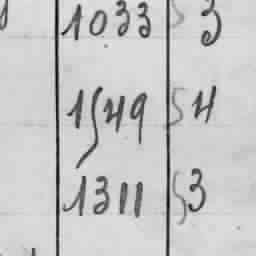 1033 3
1549 54
1311 53